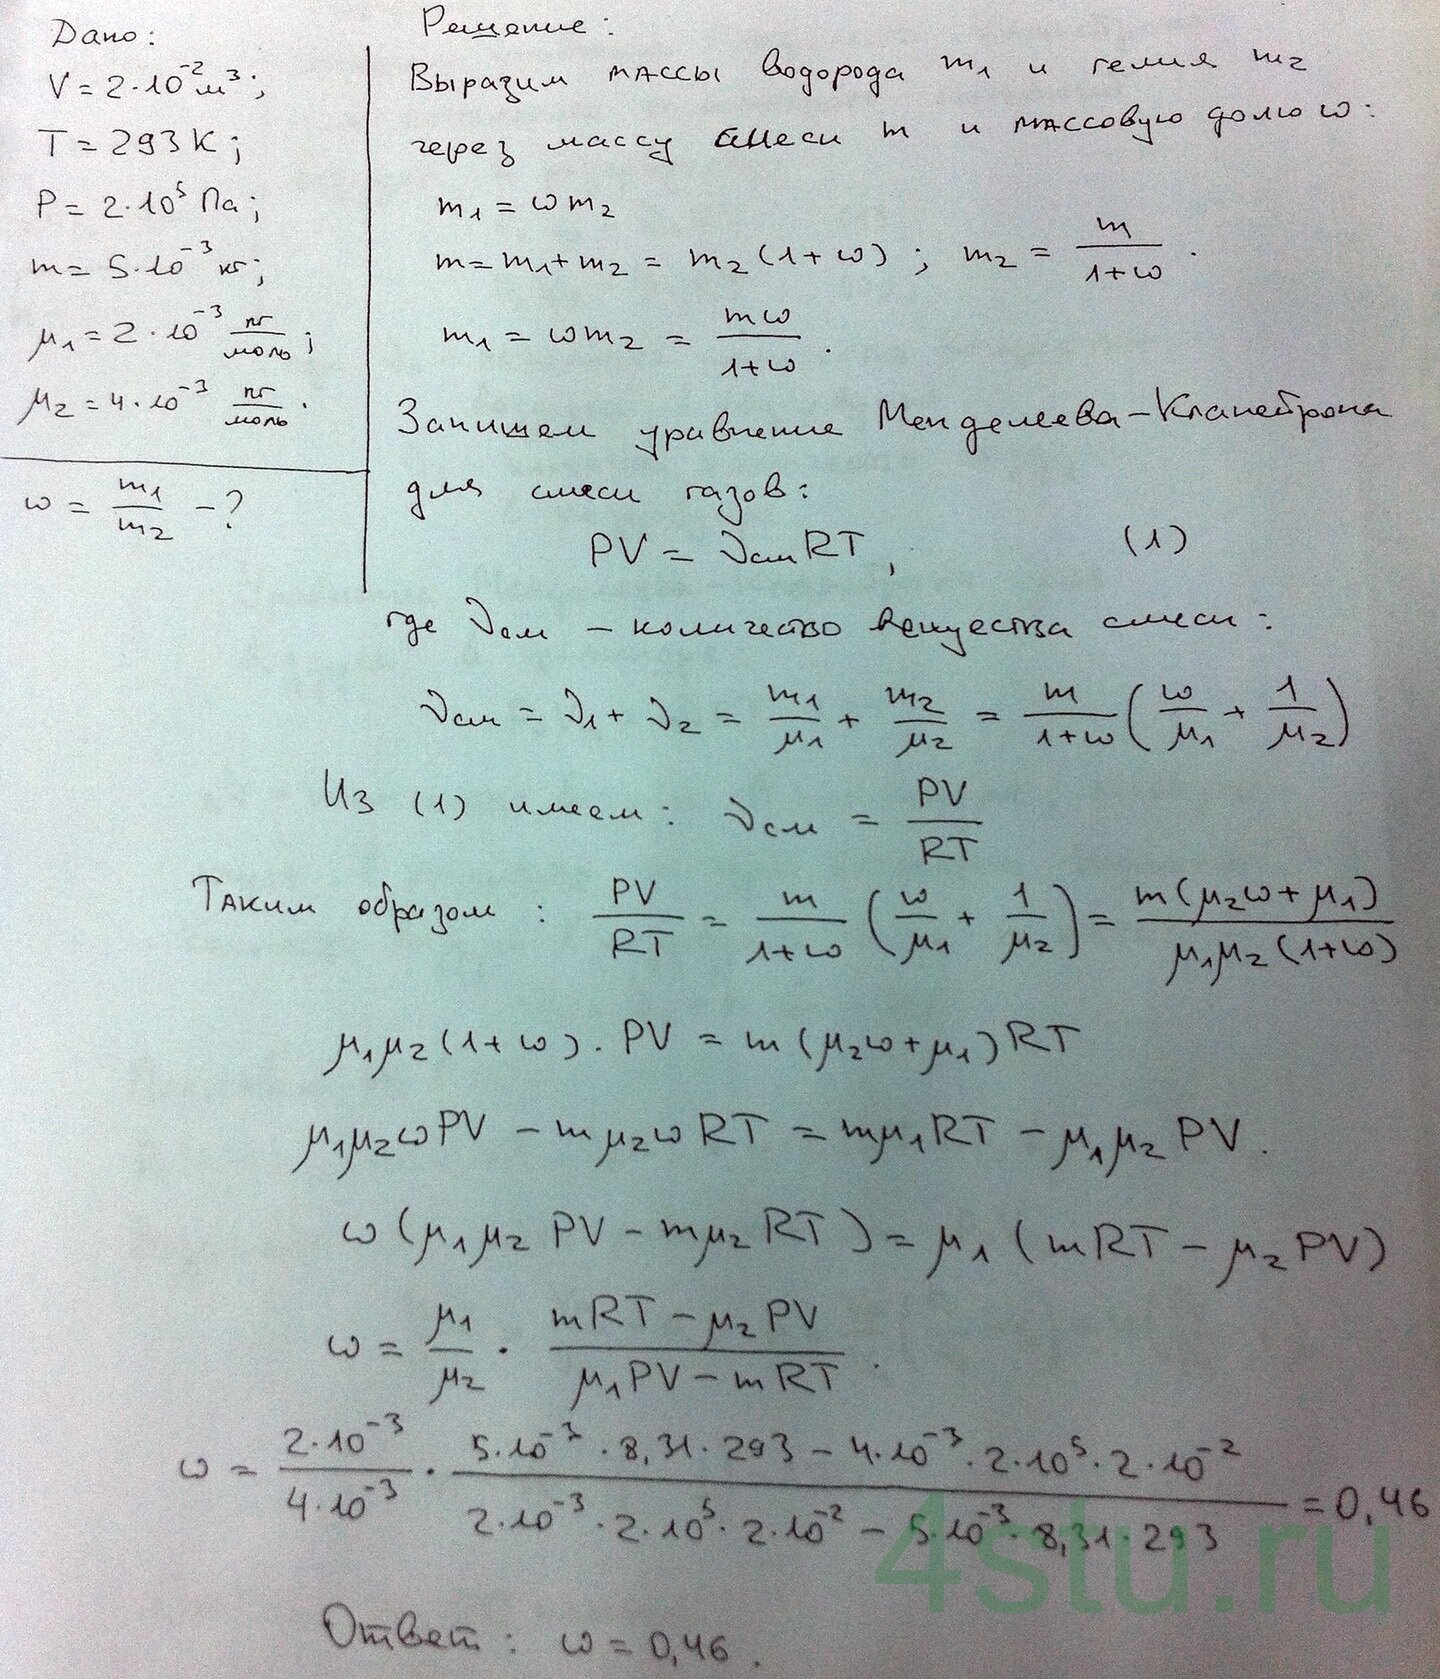 Дано:
V = 2·10⁻² м³;
T = 293 К;
P = 2·10⁵ Па;
m = 5·10⁻³ кг;
μ₁ = 2·10⁻³ кг/моль;
μ₂ = 4·10⁻³ кг/моль.
ω = m₁/m₂ - ?
Решение:
Выразим массы водорода m₁ и гелия m₂
через массу смеси m и массовую долю ω:
m₁ = ωm₂
m = m₁ + m₂ = m₂(1+ω); m₂ = m/(1+ω).
m₁ = ωm₂ = mω/(1+ω).
Запишем уравнение Менделеева-Клапейрона
для смеси газов:
PV = νсмRT, (1)
где νсм – количество вещества смеси:
νсм = ν₁ + ν₂ = m₁/μ₁ + m₂/μ₂ = m/(1+ω) (ω/μ₁ + 1/μ₂)
Из (1) имеем: νсм = PV/RT
Таким образом: PV/RT = m/(1+ω) (ω/μ₁ + 1/μ₂) = m(μ₂ω+μ₁)/(μ₁μ₂(1+ω))
μ₁μ₂(1+ω)·PV = m(μ₂ω+μ₁)RT
μ₁μ₂ωPV – mμ₂ωRT = mμ₁RT – μ₁μ₂PV.
ω(μ₁μ₂PV – mμ₂RT) = μ₁(mRT – μ₂PV)
ω = μ₁/μ₂ · (mRT – μ₂PV)/(μ₁PV – mRT).
ω = (2·10⁻³)/(4·10⁻³) · (5·10⁻³·8,31·293 – 4·10⁻³·2·10⁵·2·10⁻²)/(2·10⁻³·2·10⁵·2·10⁻² – 5·10⁻³·8,31·293) = 0,46
4stu.ru
Ответ: ω = 0,46.